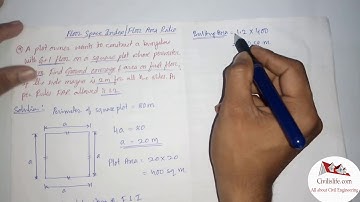 Floor Space Index / Floor Area Ratio
Q A plot owner wants to construct a bungalow
with G+1 floor on a square plot whose perimeter
is 80m. Find Ground coverage & area on first floor,
if the side margin is 2m for all the sides. As
per Rules FAR allowed is 1.2.
Solution:- Perimeter of square plot = 80m
a
a
a
a
4a = 80
a = 20m
Plot Area = 20 x 20
= 400 sq.m
F.S.I
Building Area = 1.2 x 400
sq.m
Civilislife.com
All about Civil Engineering